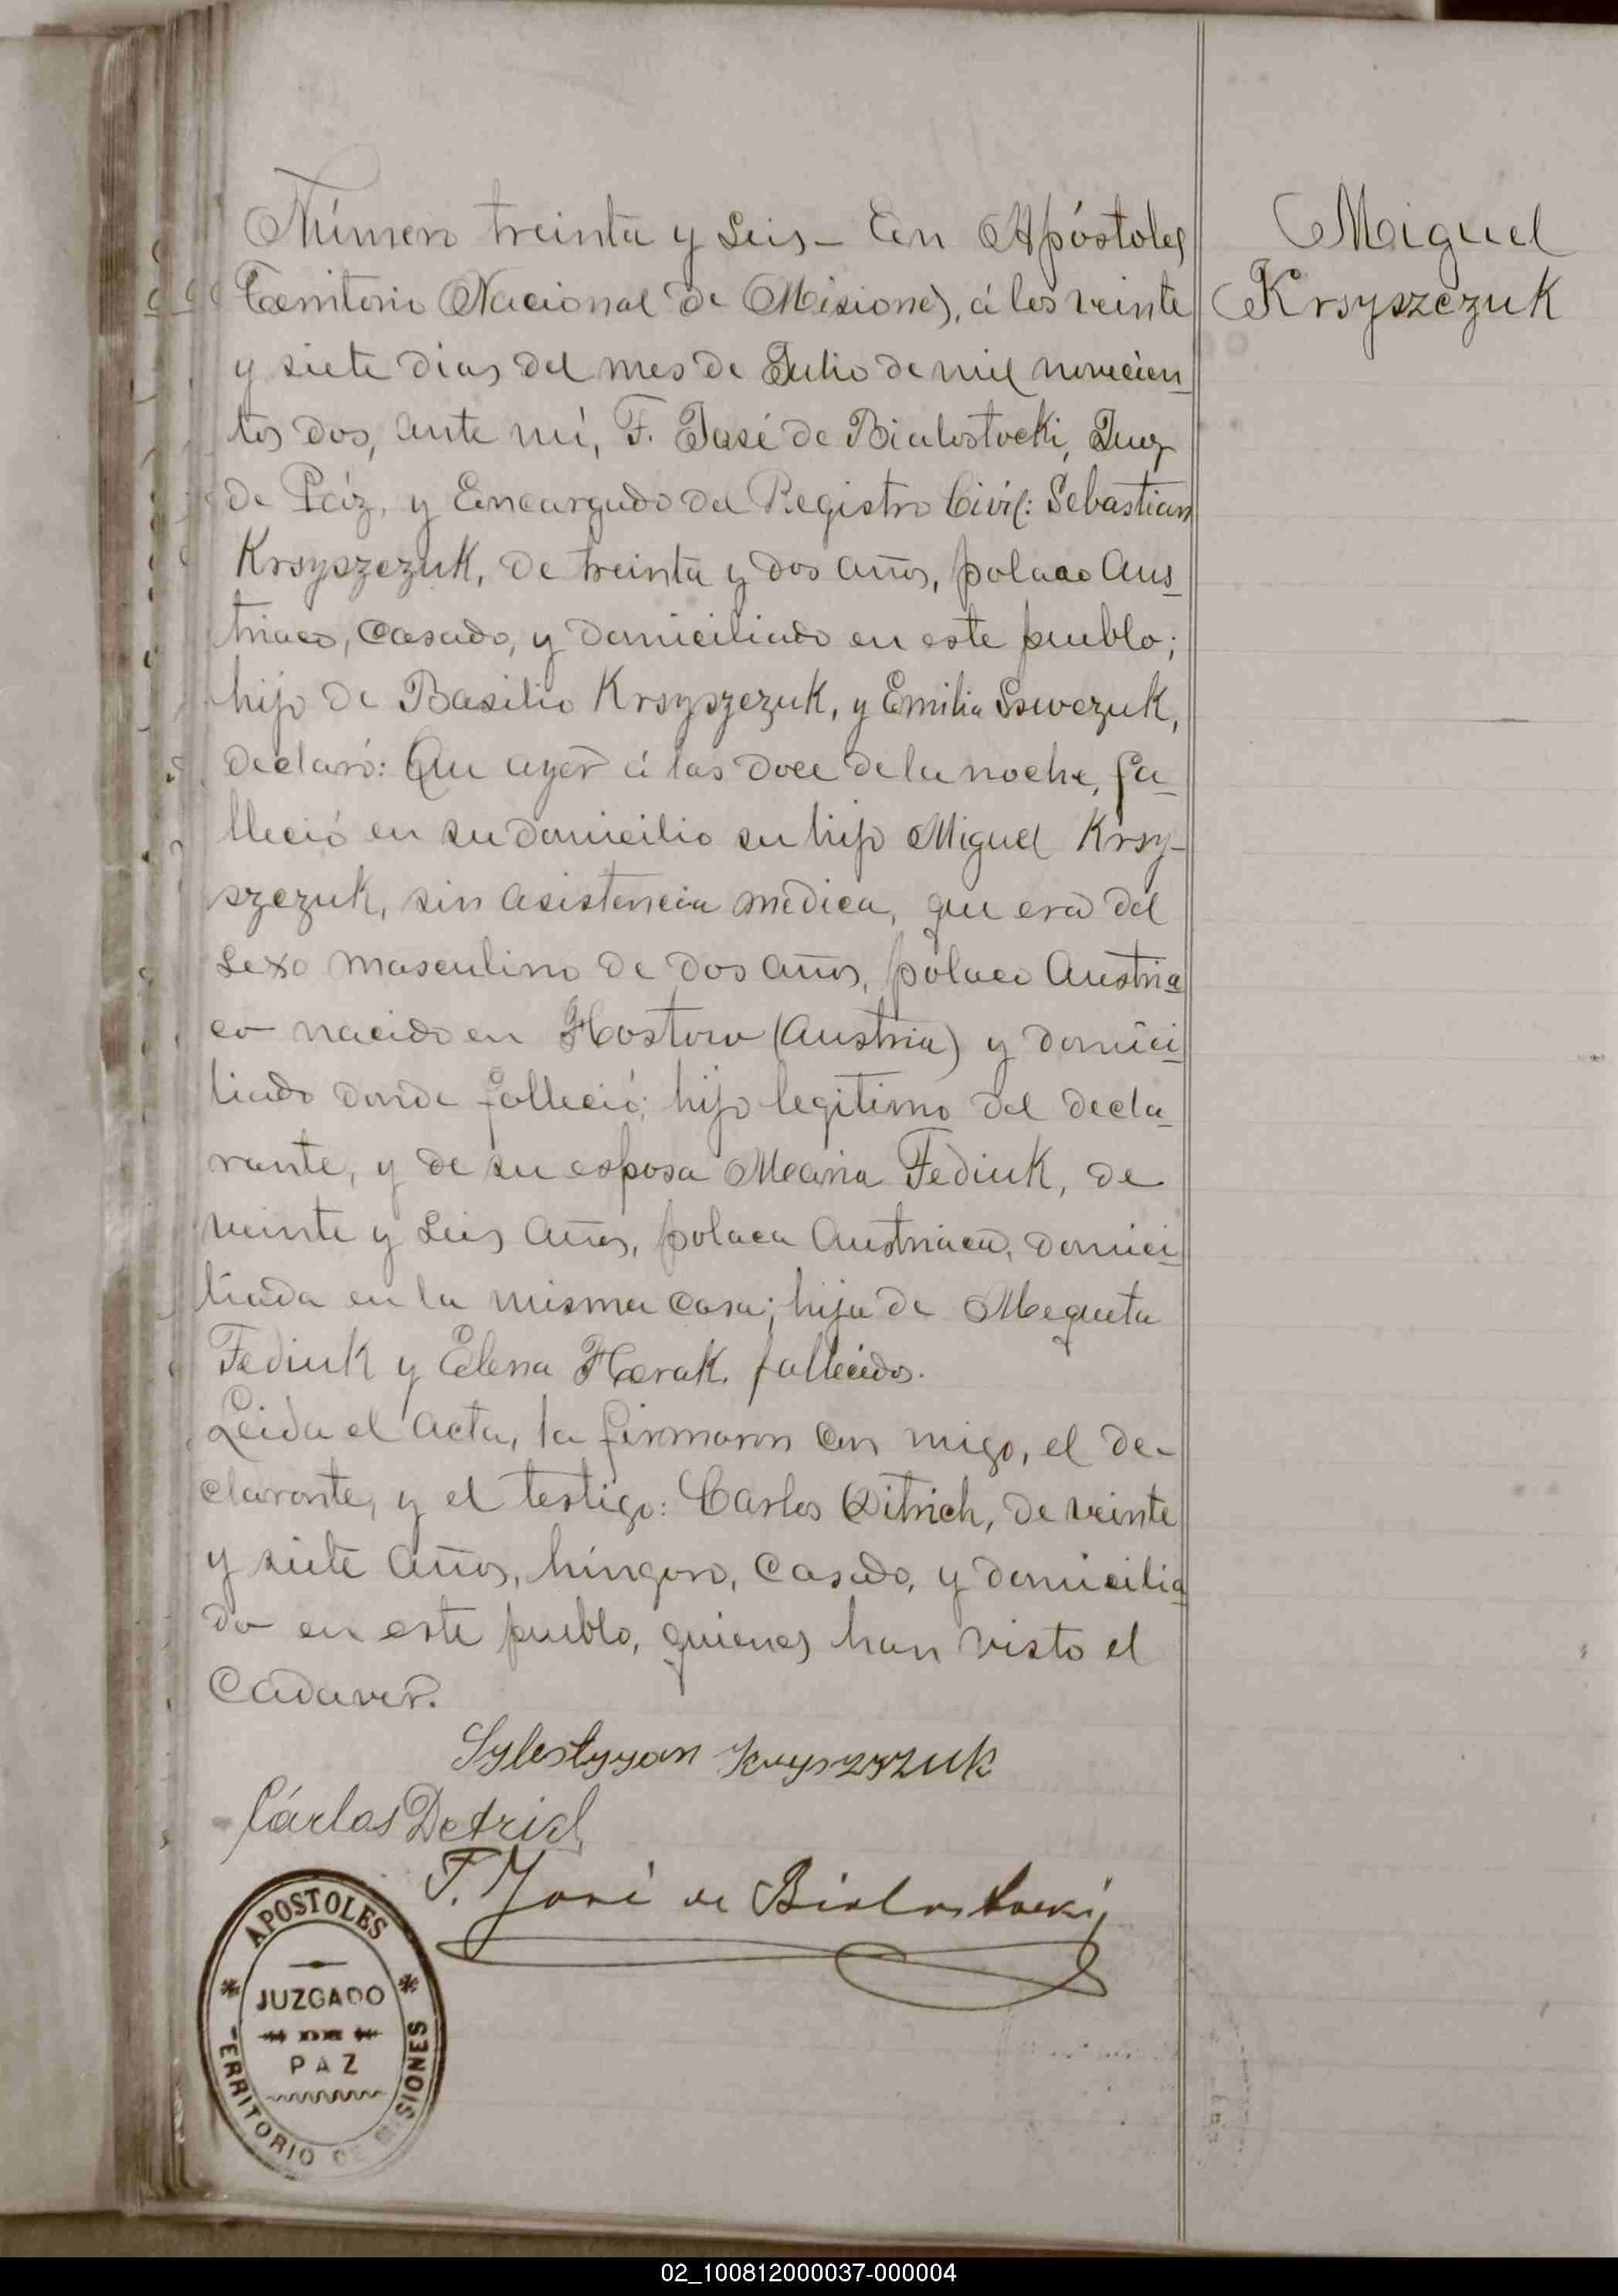 Número treinta y seis – En Apóstoles
Territorio Nacional de Misiones, á los veinte
y siete dias del mes de Julio de mil novecien
tos dos, ante mí, F. José de Bialostocki, Juez
de Páz, y Encargado del Registro Civil: Sebastian
Krsyszezuk, de treinta y dos años, polaco Aus
triaco, casado, y domiciliado en este pueblo;
hijo de Basilio Krsyszezuk, y Emilia Sswezuk,
declaró: Que ayer á las doce de la noche, fa
lleció en su domicilio su hijo Miguel Krsy-
szezuk, sin asistencia médica, que era del
sexo masculino de dos años, polaco Austria
co nacido en Hostow (Austria) y domici
liado donde falleció; hijo legitimo del decla
rante, y de su esposa Maria Fediuk, de
veinte y seis años, polaca Austriaca, domici
liada en la misma casa; hija de Mequeta
Fediuk y Elena Herak, fallecidos.
Leida el acta, la firmaron con migo, el de-
clarante, y el testigo: Carlos Ditrich, de veinte
y siete años, húngaro, casado, y domicilia
do en este pueblo, quienes han visto el
cadaver.
Sylestyyan Kryszszuk
Cárlos Detrich
F. José de Bialostocki
APOSTOLES
JUZGADO
PAZ
TERRITORIO DE MISIONES
Miguel
Krsyszezuk
02_100812000037-000004